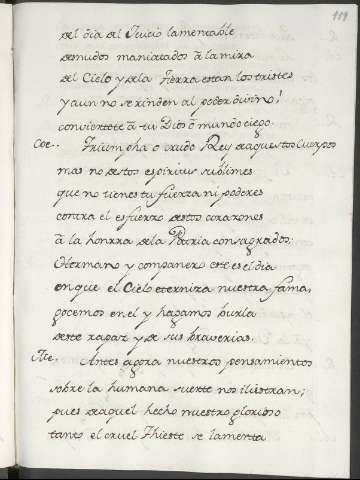 119
del dia del Juicio lamentable
desnudos maniatados â la mira
del Cielo y dela tierra estan los tristes
y aun no se rinden al poder divino!
conviertete â tu Dios ô mundo ciego.
Coe.. Triumpha ô crudo Rey deaquestos Cuerpos
mas no destos espiritus sublimes
que no tienes tu fuerza ni poderes
contra el esfuerzo destos corazones
â la honrra dela Patria consagrados:
Hermano y companero este es el dia
enque el Cielo eterniza nuestra fama,
gocemos en el y hagamos burla
deste rapaz y de sus braverias.
Antes agora nuestros pensamientos
sobre la humana suerte nos ilustran;
pues deaquel hecho nuestro glorioso
tanto el cruel Thieste se lamenta